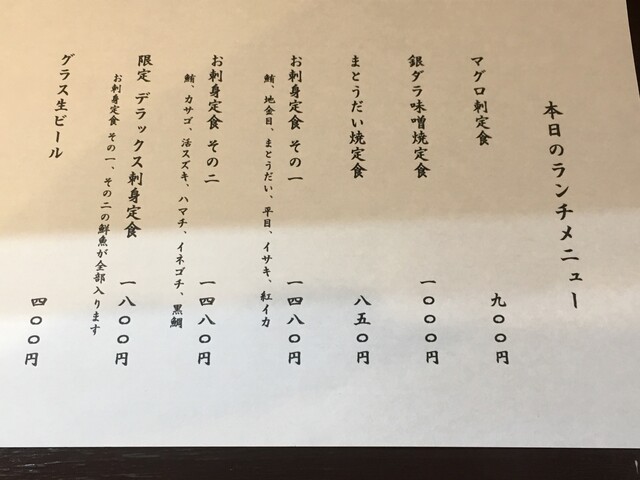 本日のランチメニュー
マグロ刺定食 九〇〇円
銀ダラ味噌焼定食 一〇〇〇円
まとうだい焼定食 八五〇円
お刺身定食 その一 一四八〇円
鮪、地金目、まとうだい、平目、イサキ、紅イカ
お刺身定食 その二 一四八〇円
鮪、カサゴ、活スズキ、ハマチ、イネゴチ、黒鯛
限定 デラックス刺身定食 一八〇〇円
お刺身定食 その一、その二の鮮魚が全部入ります
グラス生ビール 四〇〇円